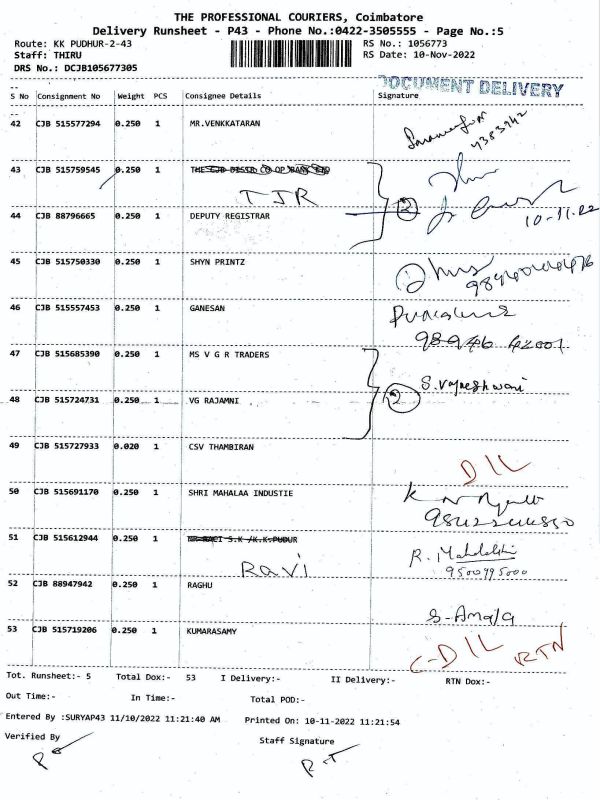 THE PROFESSIONAL COURIERS, Coimbatore
Delivery Runsheet - P43 - Phone No.:0422-3505555 - Page No.:5
Route: KK PUDHUR-2-43 RS No.: 1056773
Staff: THIRU RS Date: 10-Nov-2022
DRS No.: DCJB105677305
DOCUMENT DELIVERY
S No Consignment No Weight PCS Consignee Details Signature
42 CJB 515577294 0.250 1 MR.VENKKATARAN
43 CJB 515759545 0.250 1
TJR
44 CJB 88796665 0.250 1 DEPUTY REGISTRAR 2
10-11-22
45 CJB 515750330 0.250 1 SHYN PRINTZ
46 CJB 515557453 0.250 1 GANESAN
98946 42001
47 CJB 515685390 0.250 1 MS V G R TRADERS
S. Vajeeshwari
48 CJB 515724731 0.250 1 VG RAJAMNI 2
49 CJB 515727933 0.020 1 CSV THAMBIRAN
DIL
50 CJB 515691170 0.250 1 SHRI MAHALAA INDUSTIE
51 CJB 515612944 0.250 1
Ravi
R. Mahalakshi
9500995000
52 CJB 88947942 0.250 1 RAGHU
S-Amala
53 CJB 515719206 0.250 1 KUMARASAMY
C-DIL RTN
Tot. Runsheet:- 5 Total Dox:- 53 I Delivery:- II Delivery:- RTN Dox:-
Out Time:- In Time:- Total POD:-
Entered By :SURYAP43 11/10/2022 11:21:40 AM Printed On: 10-11-2022 11:21:54
Verified By Staff Signature
R-T